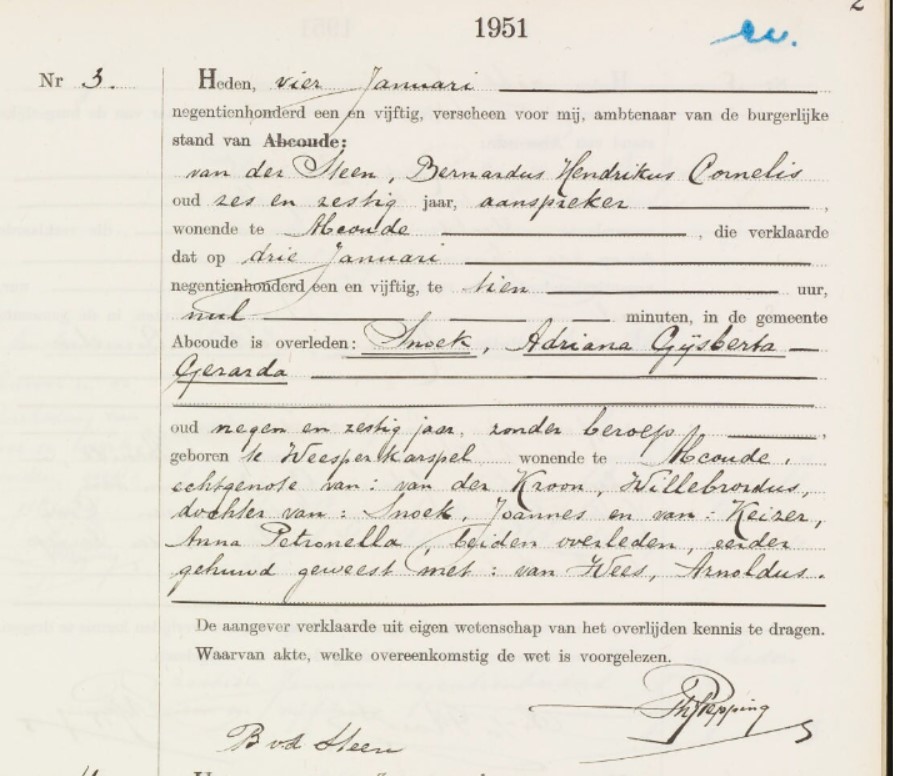 2
1951
Nr 3.
Heden, vier Januari
negentienhonderd een en vijftig, verscheen voor mij, ambtenaar van de burgerlijke
stand van Abcoude:
van der Steen, Bernardus Hendrikus Cornelis
oud zes en zestig jaar, aanspreker ,
wonende te Abcoude , die verklaarde
dat op drie Januari
negentienhonderd een en vijftig, te tien uur,
nul minuten, in de gemeente
Abcoude is overleden: Snoek, Adriana Gijsberta
Gerarda
oud negen en zestig jaar, zonder beroep, ,
geboren te Weesperkarspel wonende te Abcoude,
echtgenote van: van der Kroon, Willebrordus,
dochter van: Snoek, Joannes en van: Keizer,
Anna Petronella, beiden overleden, eerder
gehuwd geweest met: van Wees, Arnoldus.
De aangever verklaarde uit eigen wetenschap van het overlijden kennis te dragen.
Waarvan akte, welke overeenkomstig de wet is voorgelezen.
B v.d. Steen